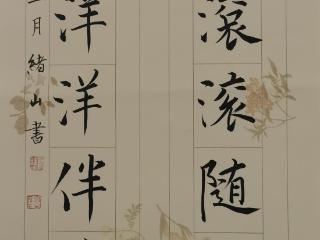 滚滚随
洋洋伴
月绪山書